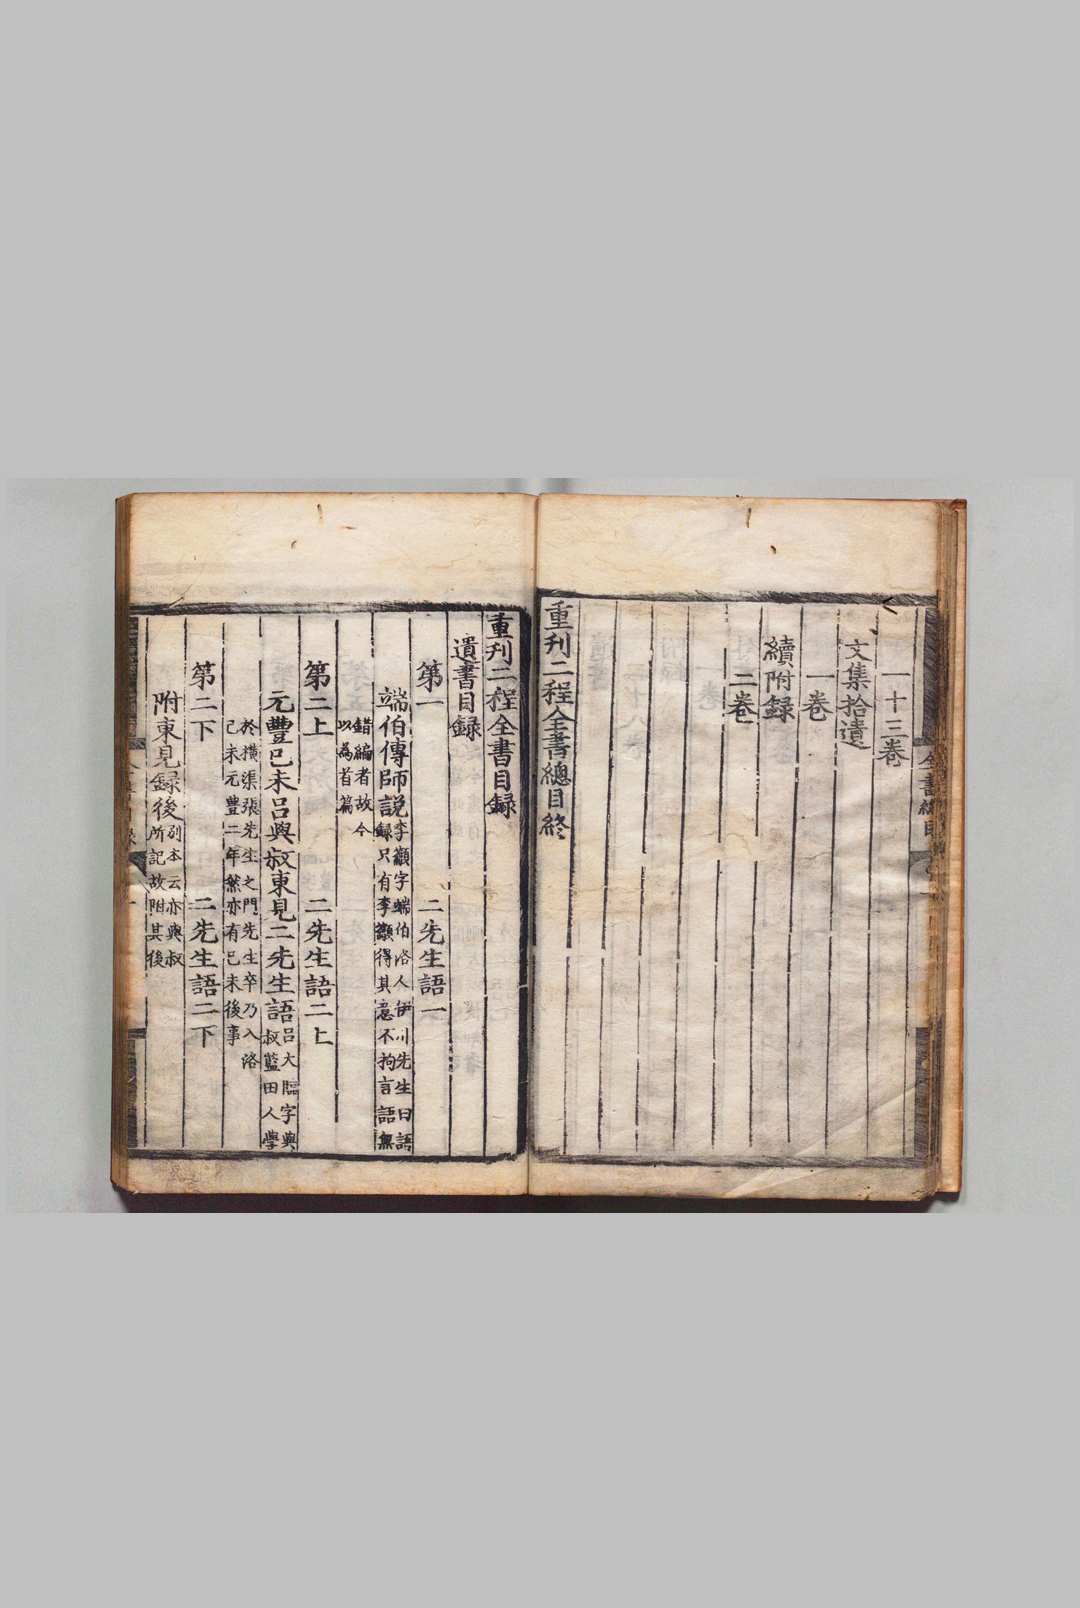 一十三卷
文集拾遺
一卷
續附録
二卷
重刊二程全書總目終
全書總目
重刊二程全書目録
遺書目録
第一 二先生語一
端伯傳師說
李籲字端伯洛人伊川先生曰語
録只有李籲得其意不拘言語無
錯編者故今
以爲首篇
第二上 二先生語二上
元豐已未呂與叔東見二先生語
呂大臨字與
叔藍田人學
於横渠張先生之門先生卒乃入洛
已未元豐二年然亦有已未後事
第二下 二先生語二下
附東見録後
别本云亦與叔
所記故附其後